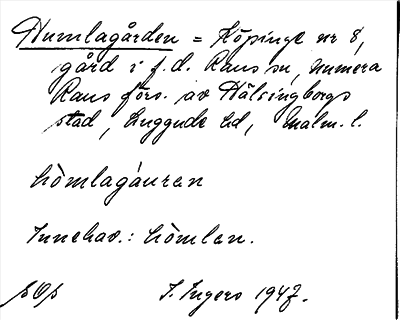 Humlagården = Köpinge nr 8,
gård i f.d. Raus sn, numera
Raus förs. av Hälsingborgs
stad, Luggude hd, Malm. l.
hömlagåuran
Innehav.: hömlan.
I. Ingers 1947.